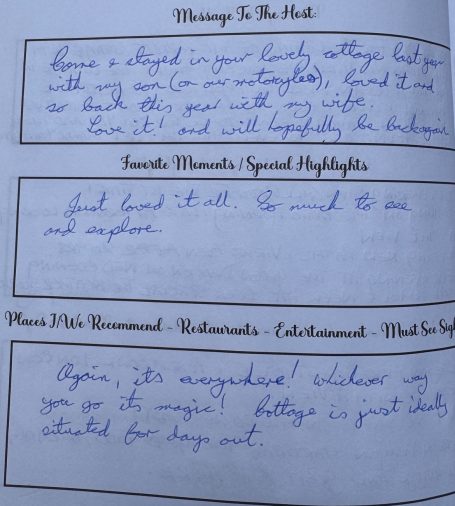 Message To The Host:
Come & stayed in your lovely cottage last year
with my son (on our motorcycles), loved it and
so back this year with my wife.
Love it! and will hopefully be back again
Favorite Moments / Special Highlights
Just loved it all. So much to see
and explore.
Places I/We Recommend - Restaurants - Entertainment - Must See Sig
Again, its everywhere! Whichever way
you go its magic! Cottage is just ideally
situated for days out.